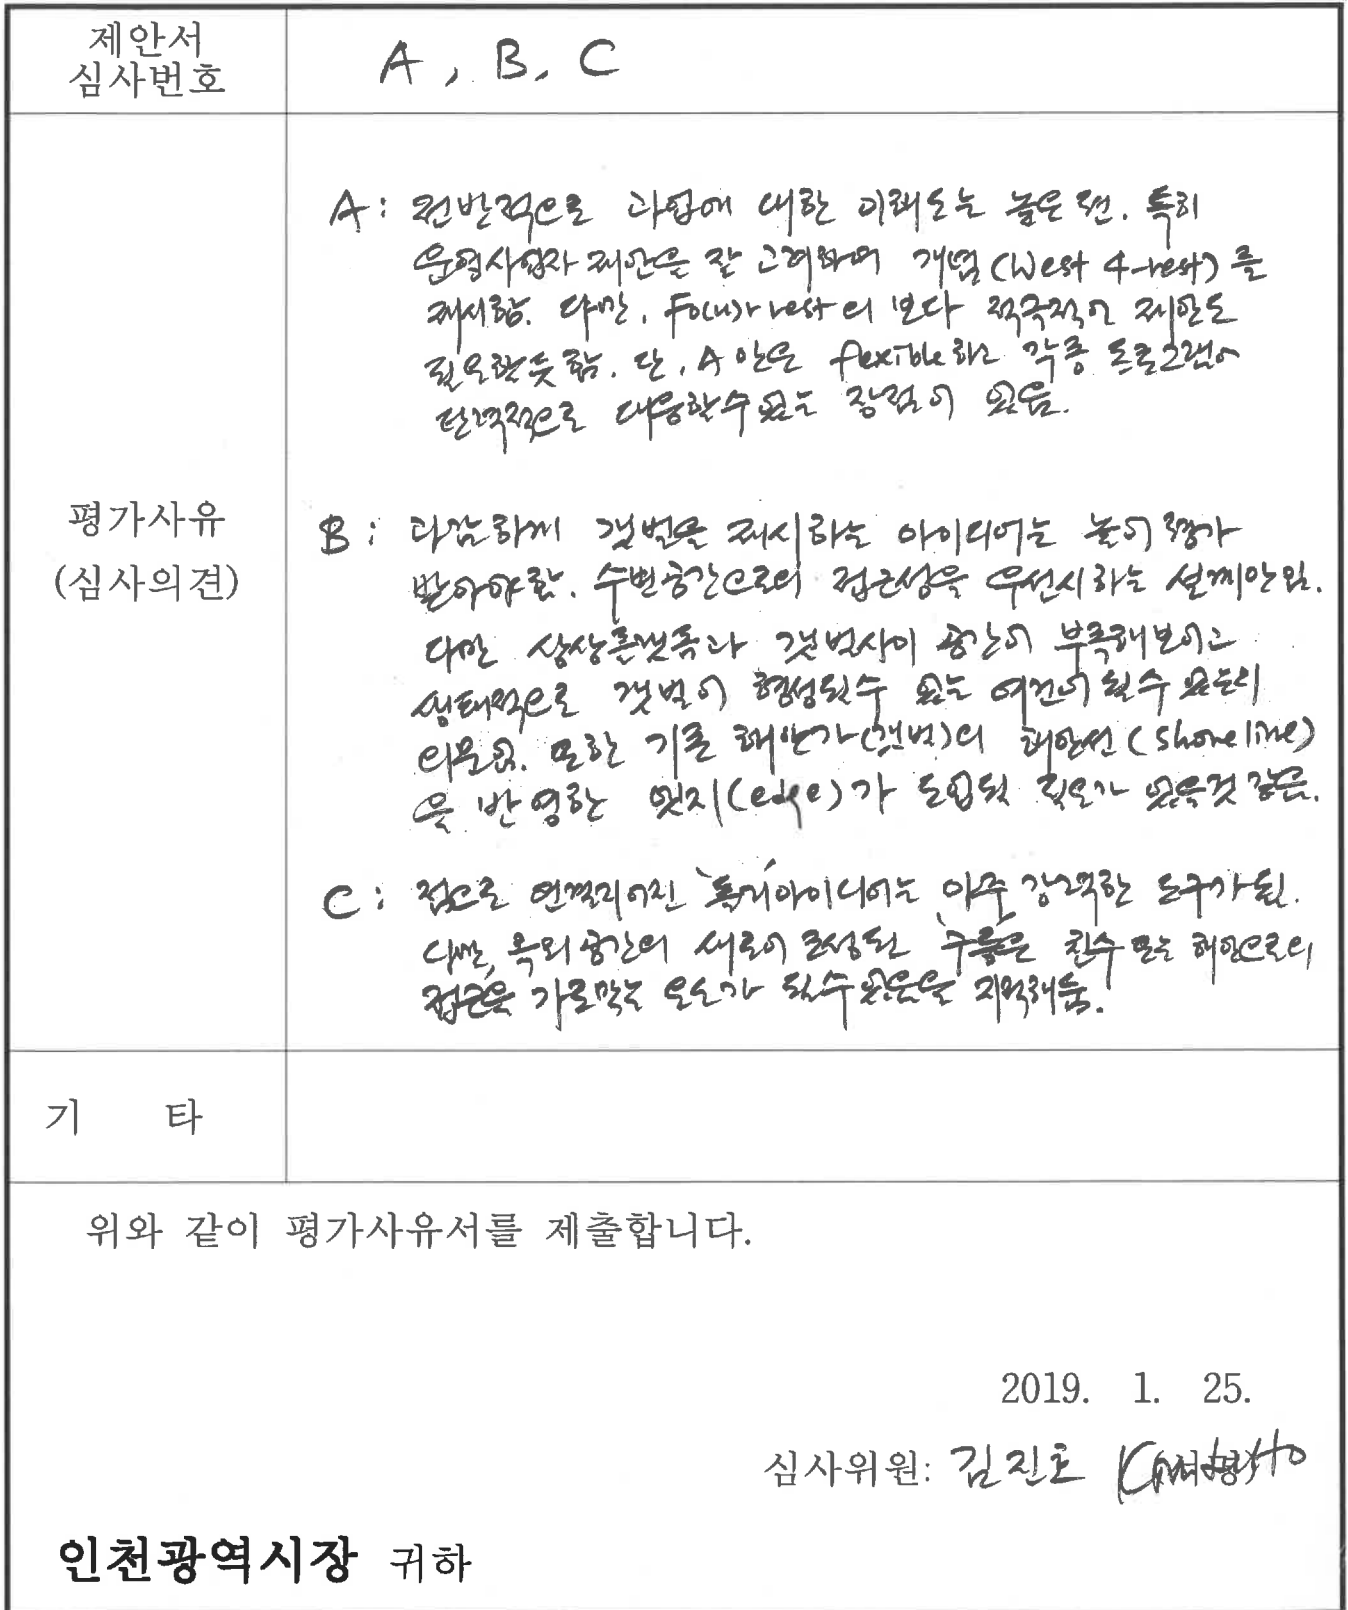 제안서
심사번호
A, B, C
평가사유
(심사의견)
A: 전반적으로 과업에 대한 이해도는 높은 편. 특히
운영사업자 제안을 잘 고려하여 개념(West 4-rest)를
제시함. 다만, Fo(u)rrest의 보다 적극적인 제안도
필요한듯 함. 단, A안은 flexible하고 각종 프로그램에
탄력적으로 대응할수 있는 장점이 있음.
B: 과감하게 갯벌을 제시하는 아이디어는 높이 평가
받아야함. 수변공간으로의 접근성을 우선시하는 설계안임.
다만 상상플랫폼과 갯벌사이 공간이 부족해보이고
생태적으로 갯벌이 형성될수 있는 여건이 될수 있는지
의문임. 또한 기존 해안가(갯벌)의 해안선(shoreline)
을 반영한 엣지(edge)가 도입될 필요가 있을것 같음.
C: 점으로 연결되어진 아이디어는 아주 강력한 도구가 됨.
다만, 옥외공간의 새로이 조성된 '구릉'은 친수 또는 해안으로의
접근을 가로막는 요소가 될수 있음을 지적해둠.
기 타
위와 같이 평가사유서를 제출합니다.
2019. 1. 25.
심사위원: 김진호 (서명)
인천광역시장 귀하